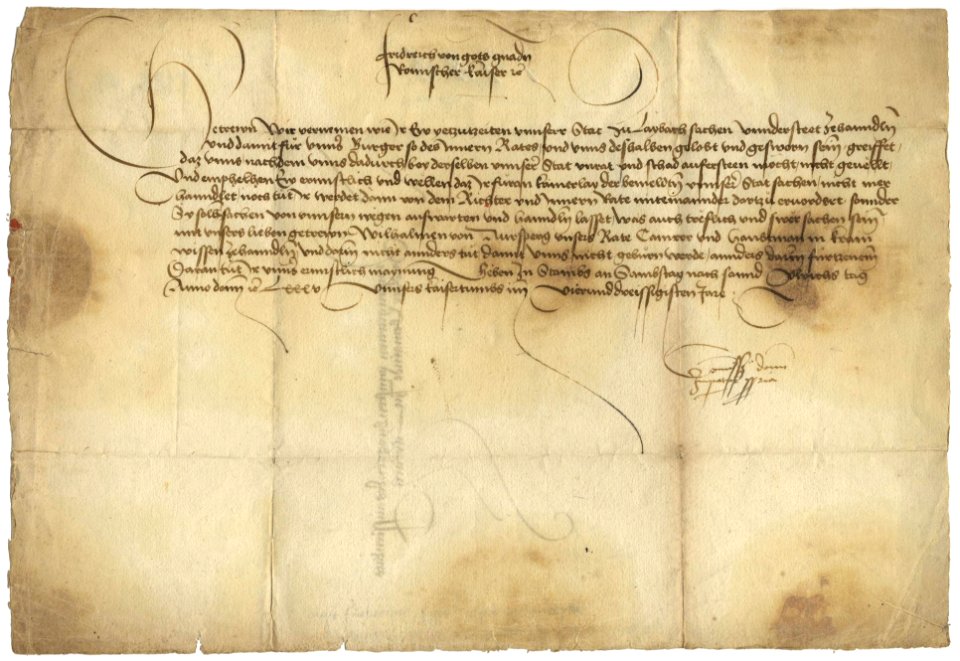 Fridreich von gots gnadn
Romischer kaiser etc
Getrewn Wir vernemen wie Ir Ew yetzuzeiten unnserr Stat zu Laybach sachen understeet zehanndln
und damit fur unns Burger so des Innern Rates und unns deshalben gelobt und gesworn sein greiffet
daz unns nachdem unns dadurch vor derselben unnser Stat unrat und schad aufersteen mocht nicht gevellt
Und emphelhen Ew ernnstlich und wellen daz Ir furan kainerlay der bemelten unnser Stat sachen nicht mer
hanndlet noch tut Ir werdet dann von dem Richter und Innern Rate miteinannder dortzu ervordert sonnder
Ir solh sachen von unnsern wegen auswarten und hanndln lasset was auch treflich und swer sachen sein
mit unsers lieben getrewn Wilhalmen von Aursperg unsers Rats Camrer und haubtman in Krain
wissen zehanndln und darin nicht annders tut damit unns nicht geburn werde annders darin furtzenemen
Daran tut Ir unns ernnstlich maynung Geben zu Stambs an Sambstag nach sannd Ulreichs tag
Anno domini etc LXXXV Unnsers kaisertumbs im Vierunddreissigisten Jare
domini